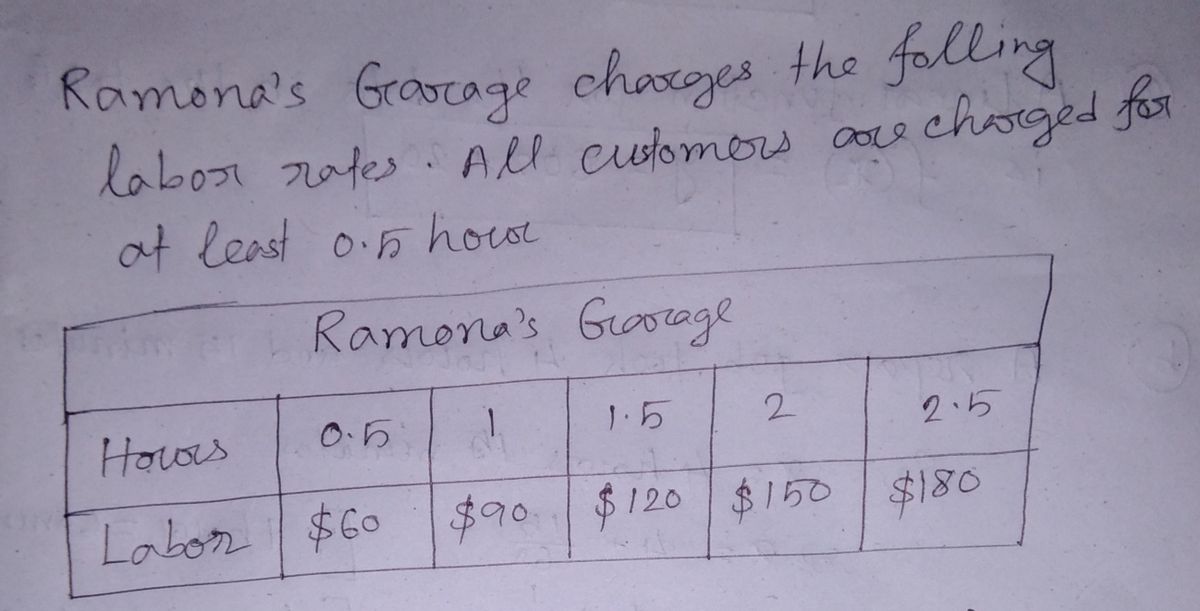 Ramona's Garage charges the folling
labor rates. All customers are charged for
at least 0.5 hour
Ramona's Garage
Hours 0.5 1 1.5 2 2.5
Labor $60 $90 $120 $150 $180